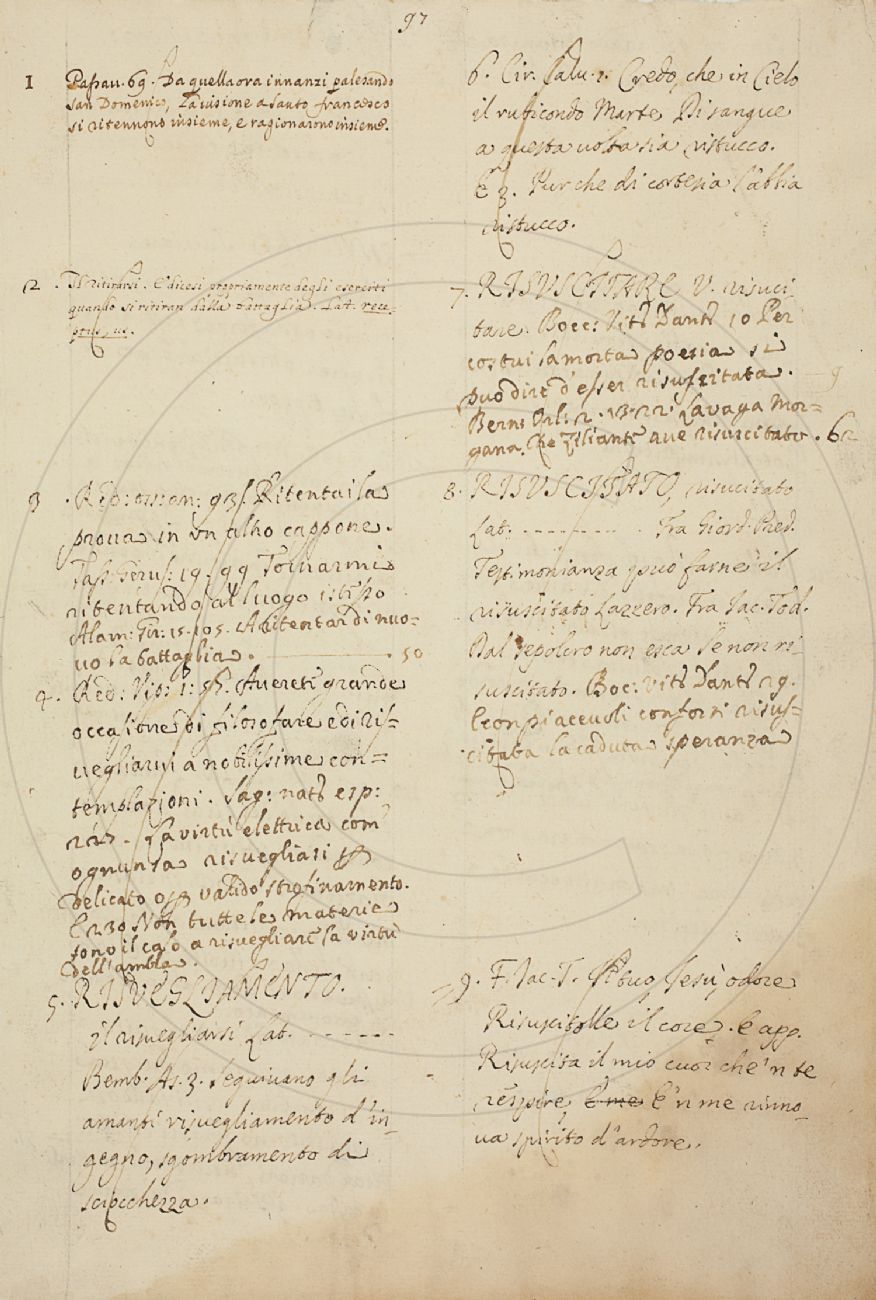 97
1 Passau. 69. Da quella ora innanzi palesando
san Domenico, la visione a santo francesco
si ritennono insieme, e ragionarono insieme.
2. Il ritirarsi. E dicesi propriamente degli eserciti
quando si ritiran dalla battaglia. Lat. rece-
ptus, us.
3. Red: oss: an: 93. Ritentai la
prova in un altro cappone.
Tass: Gerus: 19. 99 Tornarmi
ritentando al luogo istesso
Alam: Gir: 15. 105. A ritentar di nuo-
vo la battaglia. 50
4. Red: Vip: 1: Averete grande
occasione di filosofare e di ris-
vegliarvi a nobilissime con=
templazioni. Sag: nat: esp:
227. La virtù elettrica com'
ognun sa risvegliasi
delicato o valido strofinamento.
E 230 Non tutte le materie
sono il caso a risvegliare la virtù
dell'ambra.
5. RISVEGLIAMENTO.
il risvegliarsi Lat. - - - - - -
Bemb. As. 3. Seguivano gli
amanti risvegliamento d'in-
gegno, sgombramento di
sciocchezza.
6. Cir. Calv. 2. Credo, che in Cielo
il rubicondo Marte Di sangue
a questa volta sia ristucco.
E 3. Pur che di cortesia l'abbia
ristucco.
7. RISUSCITARE V. risuci
tare. Bocc: Vit: Dant: 10 Per
costui la morta poesia si
può dire d'esser risuscitata. 9
Bern: Orl: 2. 13. 22: La vaga Mor=
gana, che Ziliante ave risuscitato. 62
8. RISUSCITATO, risucitato
Lat. - - - - - - - - Fra Giord. Pred.
Testimonianza può farne il
risuscitato Lazzero. Fra Jac. Tod.
Dal sepolcro non esca Se non ri-
suscitato. Boc: Vit: Dant: 29.
E con piacevoli conforti risus=
citata la caduta speranza
9. F. Jac. T. Il tuo, Jesù, odore
Risuscitolle il core. E app.
Risuscita il mio cuor che 'n te
respire, E me E 'n me rinno-
va spirito d'ardore.